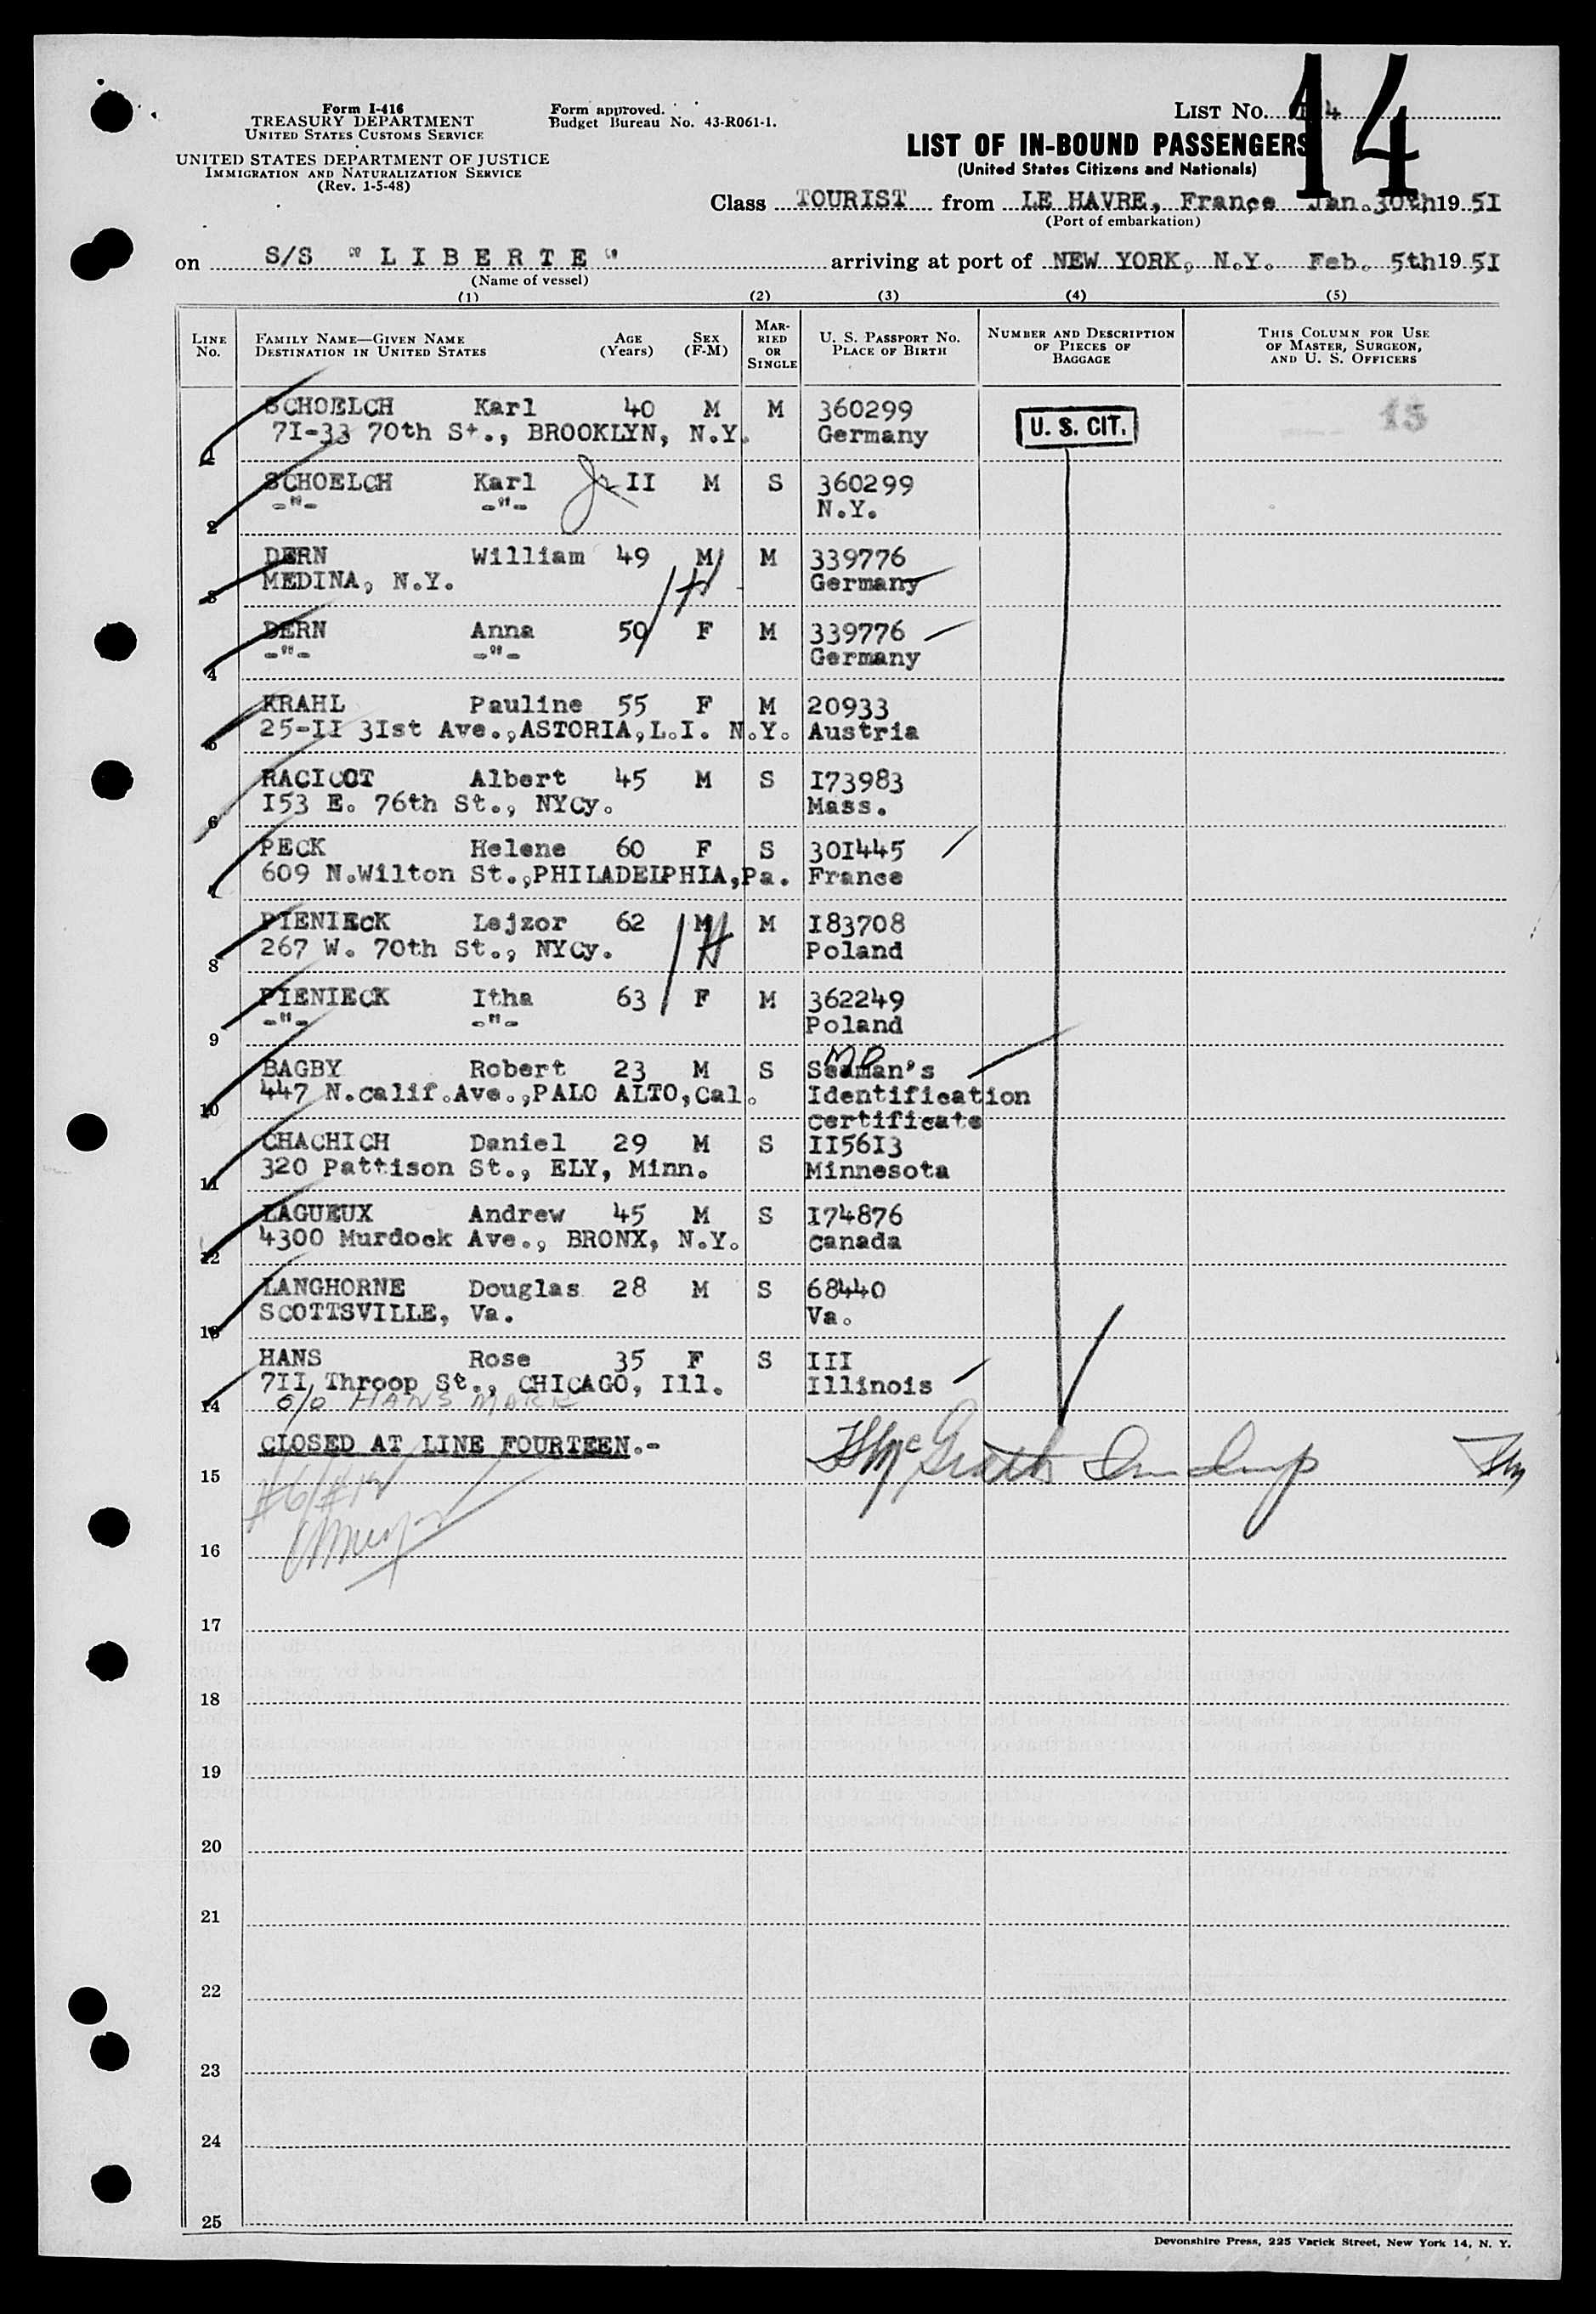 Form I-416
TREASURY DEPARTMENT
UNITED STATES CUSTOMS SERVICE
UNITED STATES DEPARTMENT OF JUSTICE
IMMIGRATION AND NATURALIZATION SERVICE
(Rev. 1-5-48)
Form approved.
Budget Bureau No. 43-R061-1.
LIST No. 14
14
LIST OF IN-BOUND PASSENGERS
(United States Citizens and Nationals)
Class TOURIST from LE HAVRE, France Jan. 30th 19 5I
(Port of embarkation)
on S/S "L I B E R T E" arriving at port of NEW YORK, N.Y. Feb. 5th 19 5I
(Name of vessel)
(1) (2) (3) (4) (5)
LINE No.
FAMILY NAME—GIVEN NAME
DESTINATION IN UNITED STATES
AGE (Years)
SEX (F-M)
MARRIED OR SINGLE
U. S. PASSPORT No.
PLACE OF BIRTH
NUMBER AND DESCRIPTION OF PIECES OF BAGGAGE
THIS COLUMN FOR USE OF MASTER, SURGEON, AND U. S. OFFICERS
SCHOELCH Karl 40 M M 360299 U. S. CIT. 15
1 7I-33 70th St., BROOKLYN, N.Y. Germany
SCHOELCH Karl Jr II M S 360299
2 -"- -"- N.Y.
DERN William 49 M M 339776
3 MEDINA, N.Y. Germany
DERN Anna 50 F M 339776
4 -"- -"- Germany
KRAHL Pauline 55 F M 20933
5 25-II 3Ist Ave.,ASTORIA,L.I. N.Y. Austria
RACICOT Albert 45 M S I73983
6 I53 E. 76th St., NYCy. Mass.
PECK Helene 60 F S 30I445
7 609 N.Wilton St.,PHILADELPHIA,Pa. France
PIENIECK Lejzor 62 M M I83708
8 267 W. 70th St., NYCy. Poland
PIENIECK Itha 63 F M 362249
9 -"- -"- Poland
BAGBY Robert 23 M S Seaman's
10 447 N.Calif.Ave.,PALO ALTO,Cal. Identification
certificate
CHACHICH Daniel 29 M S II56I3
11 320 Pattison St., ELY, Minn. Minnesota
LAGUEUX Andrew 45 M S I74876
12 4300 Murdock Ave., BRONX, N.Y. Canada
LANGHORNE Douglas 28 M S 68440
13 SCOTTSVILLE, Va. Va.
HANS Rose 35 F S III
7II Throop St., CHICAGO, Ill. Illinois
14 c/o HANS MARK
CLOSED AT LINE FOURTEEN.-
15
16
17
18
19
20
21
22
23
24
25
Devonshire Press, 225 Varick Street, New York 14, N. Y.